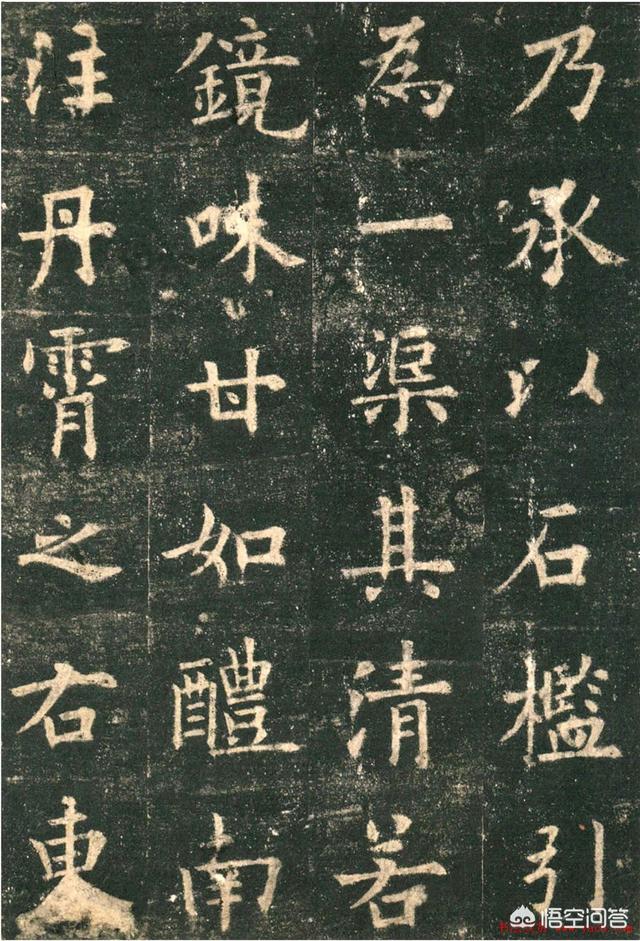 乃承以石檻引
為一渠其清若
鏡味甘如醴南
注丹霄之右東
悟空问答